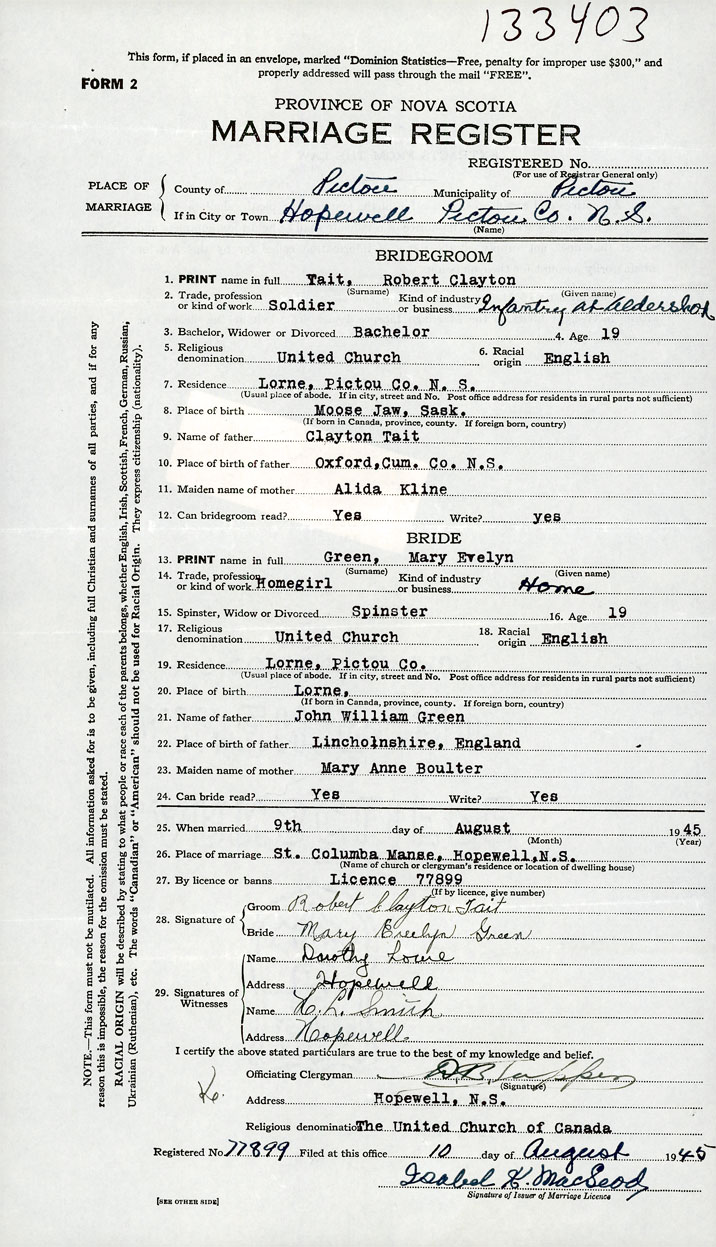 133403
This form, if placed in an envelope, marked "Dominion Statistics—Free, penalty for improper use $300," and
properly addressed will pass through the mail "FREE".
FORM 2
PROVINCE OF NOVA SCOTIA
MARRIAGE REGISTER
REGISTERED No.
(For use of Registrar General only)
PLACE OF MARRIAGE
County of Pictou Municipality of Pictou
If in City or Town Hopewell Pictou Co. N.S.
(Name)
BRIDEGROOM
1. PRINT name in full Tait, Robert Clayton
(Surname) (Given name)
2. Trade, profession or kind of work Soldier Kind of industry or business Infantry at Aldershot
3. Bachelor, Widower or Divorced Bachelor 4. Age 19
5. Religious denomination United Church 6. Racial origin English
7. Residence Lorne, Pictou Co. N. S.
(Usual place of abode. If in city, street and No. Post office address for residents in rural parts not sufficient)
8. Place of birth Moose Jaw, Sask.
(If born in Canada, province, county. If foreign born, country)
9. Name of father Clayton Tait
10. Place of birth of father Oxford,Cum. Co. N.S.
11. Maiden name of mother Alida Kline
12. Can bridegroom read? Yes Write? yes
BRIDE
13. PRINT name in full Green, Mary Evelyn
(Surname) (Given name)
14. Trade, profession or kind of work Homegirl Kind of industry or business Home
15. Spinster, Widow or Divorced Spinster 16. Age 19
17. Religious denomination United Church 18. Racial origin English
19. Residence Lorne, Pictou Co.
(Usual place of abode. If in city, street and No. Post office address for residents in rural parts not sufficient)
20. Place of birth Lorne,
(If born in Canada, province, county. If foreign born, country)
21. Name of father John William Green
22. Place of birth of father Lincholnshire, England
23. Maiden name of mother Mary Anne Boulter
24. Can bride read? Yes Write? Yes
25. When married 9th day of August 1945
(Month) (Year)
26. Place of marriage St. Columba Manse, Hopewell,N.S.
(Name of church or clergyman's residence or location of dwelling house)
27. By licence or banns Licence 77899
(If by licence, give number)
28. Signature of
Groom Robert Clayton Tait
Bride Mary Evelyn Green
29. Signatures of Witnesses
Name Dorothy Lowe
Address Hopewell
Name H. L. Smith
Address Hopewell.
I certify the above stated particulars are true to the best of my knowledge and belief.
Officiating Clergyman D. B.
(Signature)
Address Hopewell, N.S.
Religious denomination The United Church of Canada
Registered No 77899 Filed at this office 10 day of August 1945
Isabel K. MacLeod
Signature of Issuer of Marriage Licence
[SEE OTHER SIDE]
NOTE.—This form must not be mutilated. All information asked for is to be given, including full Christian and surnames of all parties, and if for any
reason this is impossible, the reason for the omission must be stated.
RACIAL ORIGIN will be described by stating to what people or race each of the parents belongs, whether English, Irish, Scottish, French, German, Russian,
Ukrainian (Ruthenian), etc. The words "Canadian" or "American" should not be used for Racial Origin. They express citizenship (nationality).